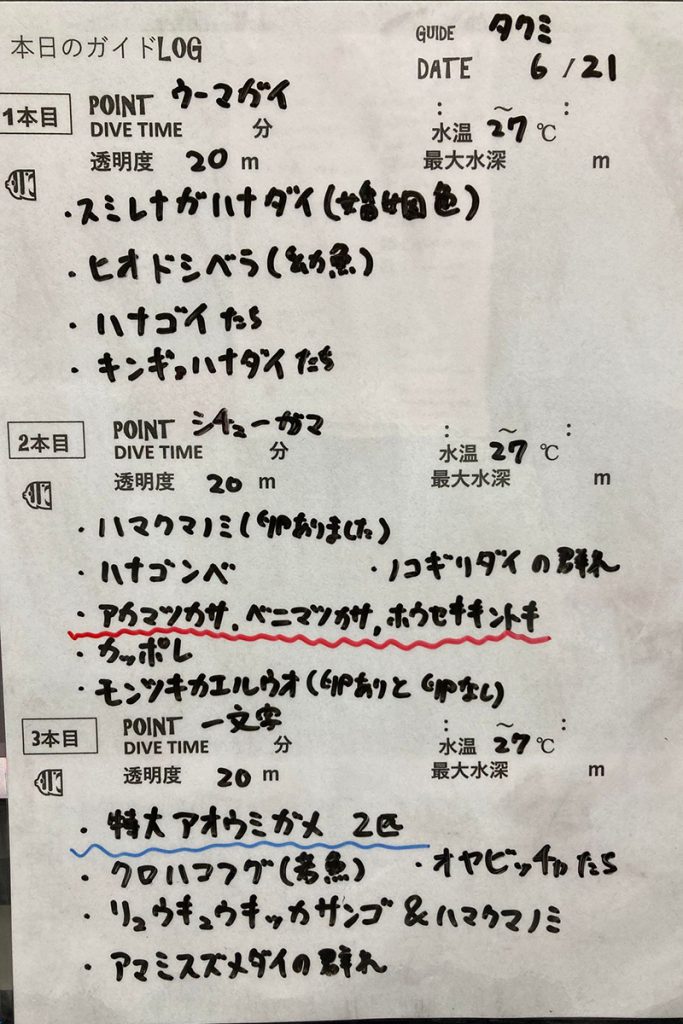 本日のガイドLOG
GUIDE タクミ
DATE 6/21
1本目 POINT ウーマガイ : ～ :
DIVE TIME 分 水温 27℃
透明度 20 m 最大水深 m
・スミレナガハナダイ(婚姻色)
・ヒオドシベラ(幼魚)
・ハナゴイたち
・キンギョハナダイたち
2本目 POINT シチューガマ : ～ :
DIVE TIME 分 水温 27℃
透明度 20 m 最大水深 m
・ハマクマノミ(卵ありました)
・ハナゴンベ ・ノコギリダイの群れ
・アカマツカサ,ベニマツカサ,ホウセキキントキ
・カッポレ
・モンツキカエルウオ(卵ありと卵なし)
3本目 POINT 一文字 : ～ :
DIVE TIME 分 水温 27℃
透明度 20 m 最大水深 m
・特大アオウミガメ 2匹
・クロハコフグ(若魚) ・オヤビッチャたち
・リュウキュウキッカサンゴ&ハマクマノミ
・アマミスズメダイの群れ